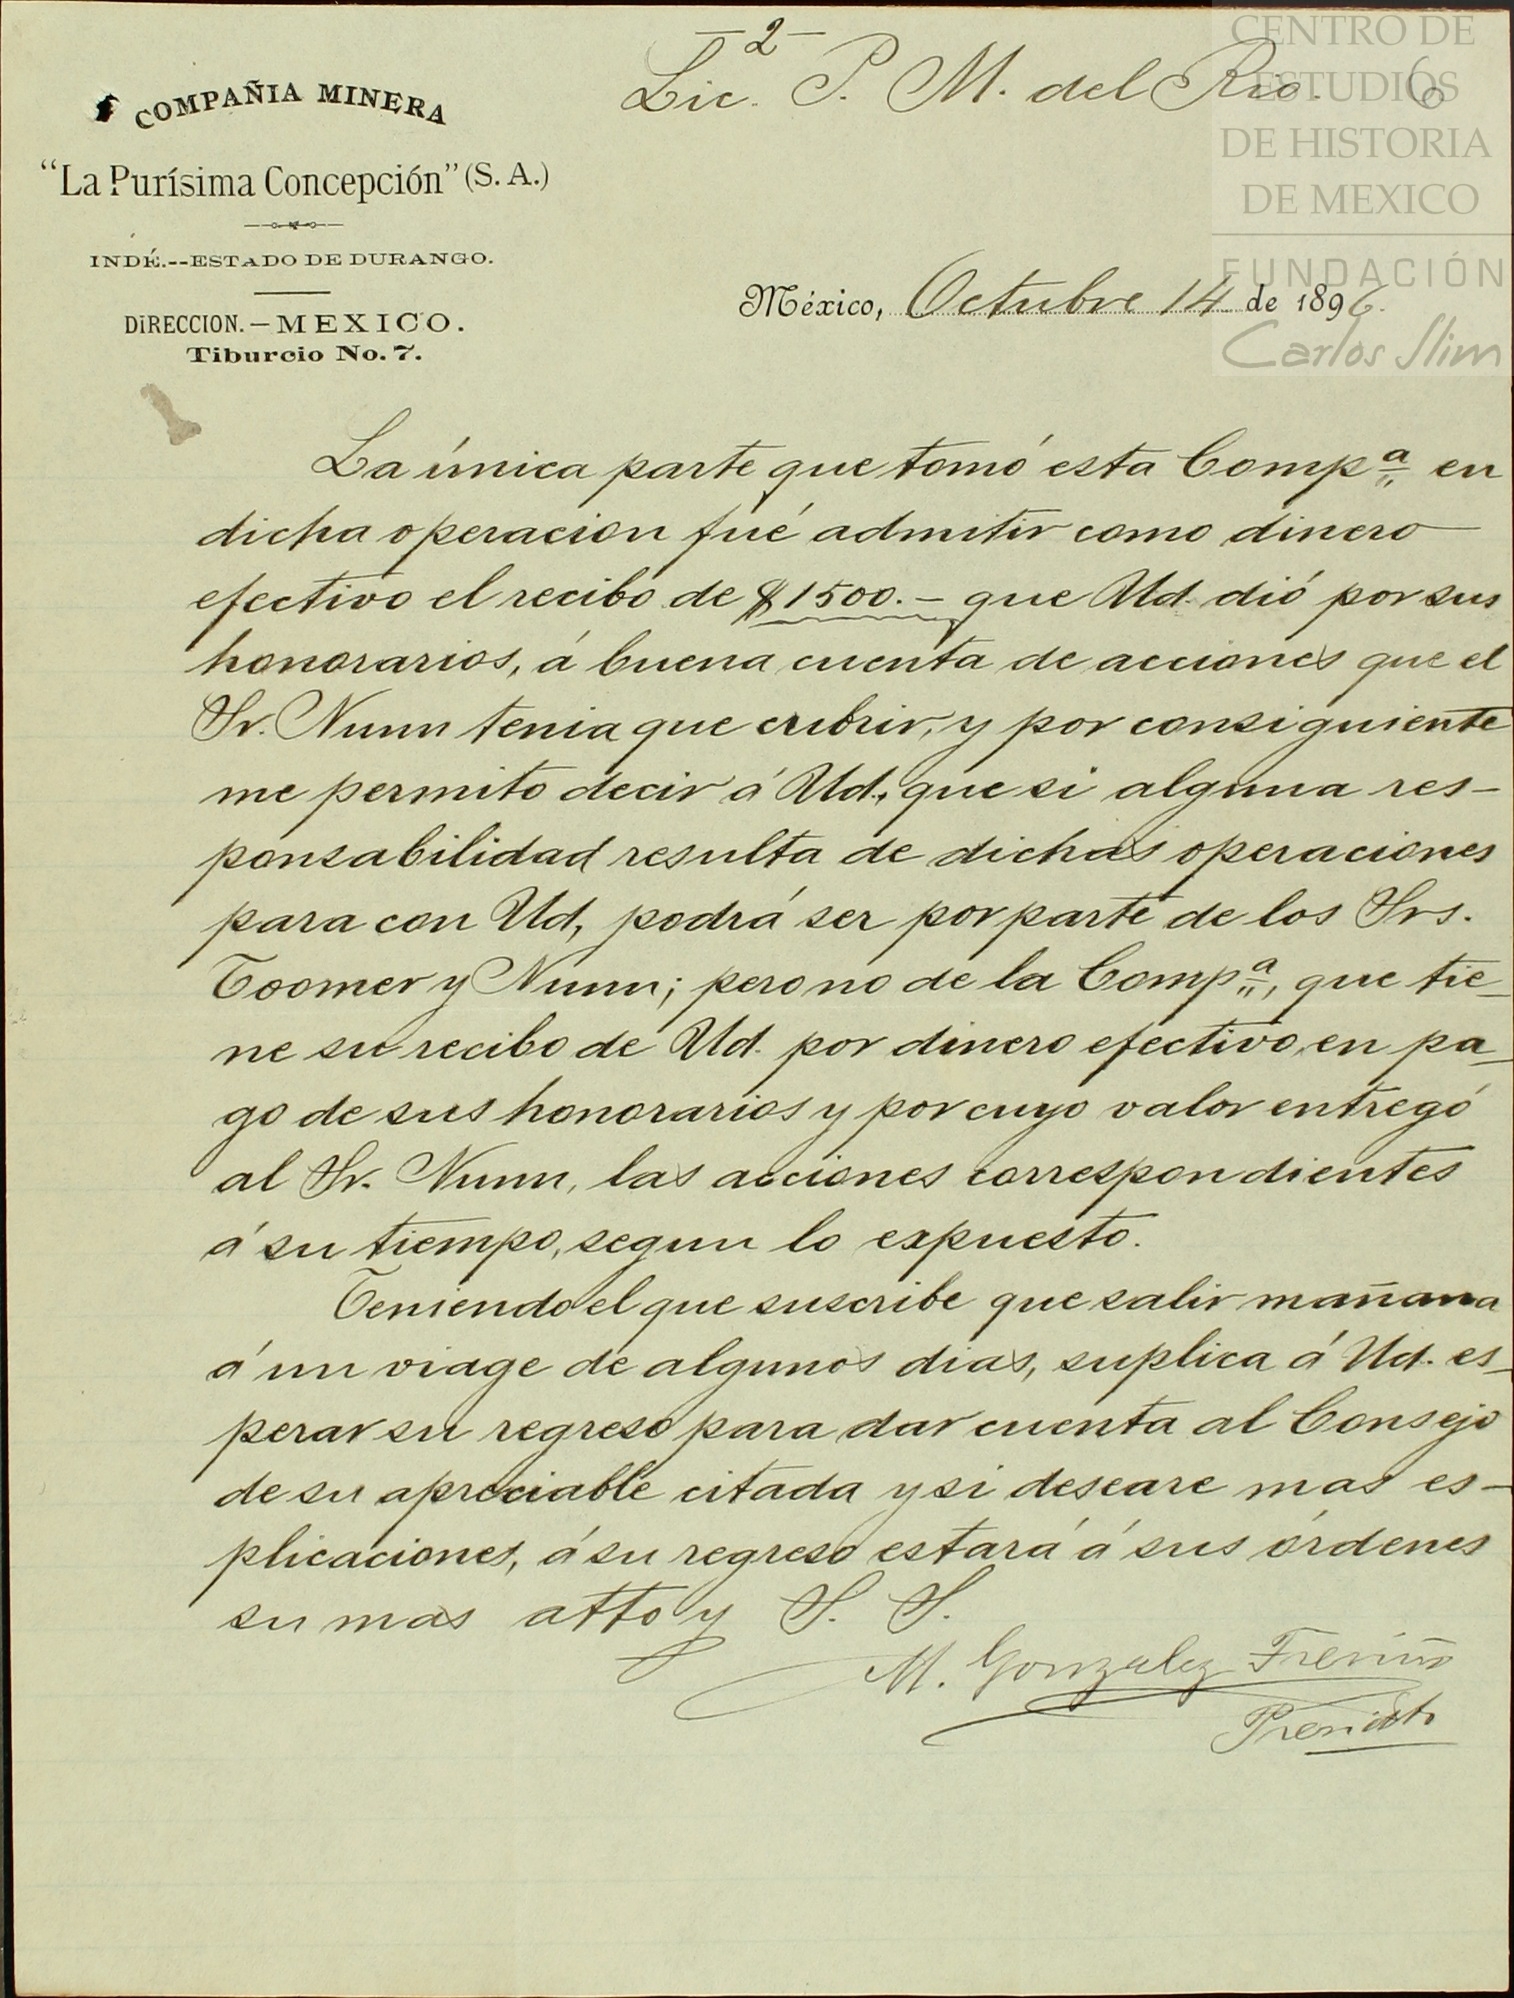 - 2 -
Lic. P. M. del Rio. 6
COMPAÑIA MINERA
"La Purísima Concepción" (S. A.)
INDÉ.--ESTADO DE DURANGO.
DIRECCION.—MEXICO.
Tiburcio No. 7.
CENTRO DE
ESTUDIOS
DE HISTORIA
DE MEXICO
FUNDACIÓN
Carlos Slim
México, Octubre 14 de 1896.
La única parte que tomó esta Compª en
dicha operacion fué admitir como dinero
efectivo el recibo de $1500.- que Ud. dió por sus
honorarios, á buena cuenta de acciones que el
Sr. Nunn tenia que cubrir, y por consiguiente
me permito decir á Ud., que si alguna res-
ponsabilidad resulta de dichas operaciones
para con Ud, podrá ser por parte de los Srs.
Toomer y Nunn; pero no de la Compª, que tie-
ne su recibo de Ud. por dinero efectivo, en pa-
go de sus honorarios y por cuyo valor entregó
al Sr. Nunn, las acciones correspondientes
á su tiempo, segun lo expuesto.
Teniendo el que suscribe que salir mañana
á un viage de algunos dias, suplica á Ud. es-
perar su regreso para dar cuenta al Consejo
de su apreciable citada y si deseare mas es-
plicaciones, á su regreso estará á sus órdenes
su mas atto y S. S.
M. Gonzalez Treviño
Presidte